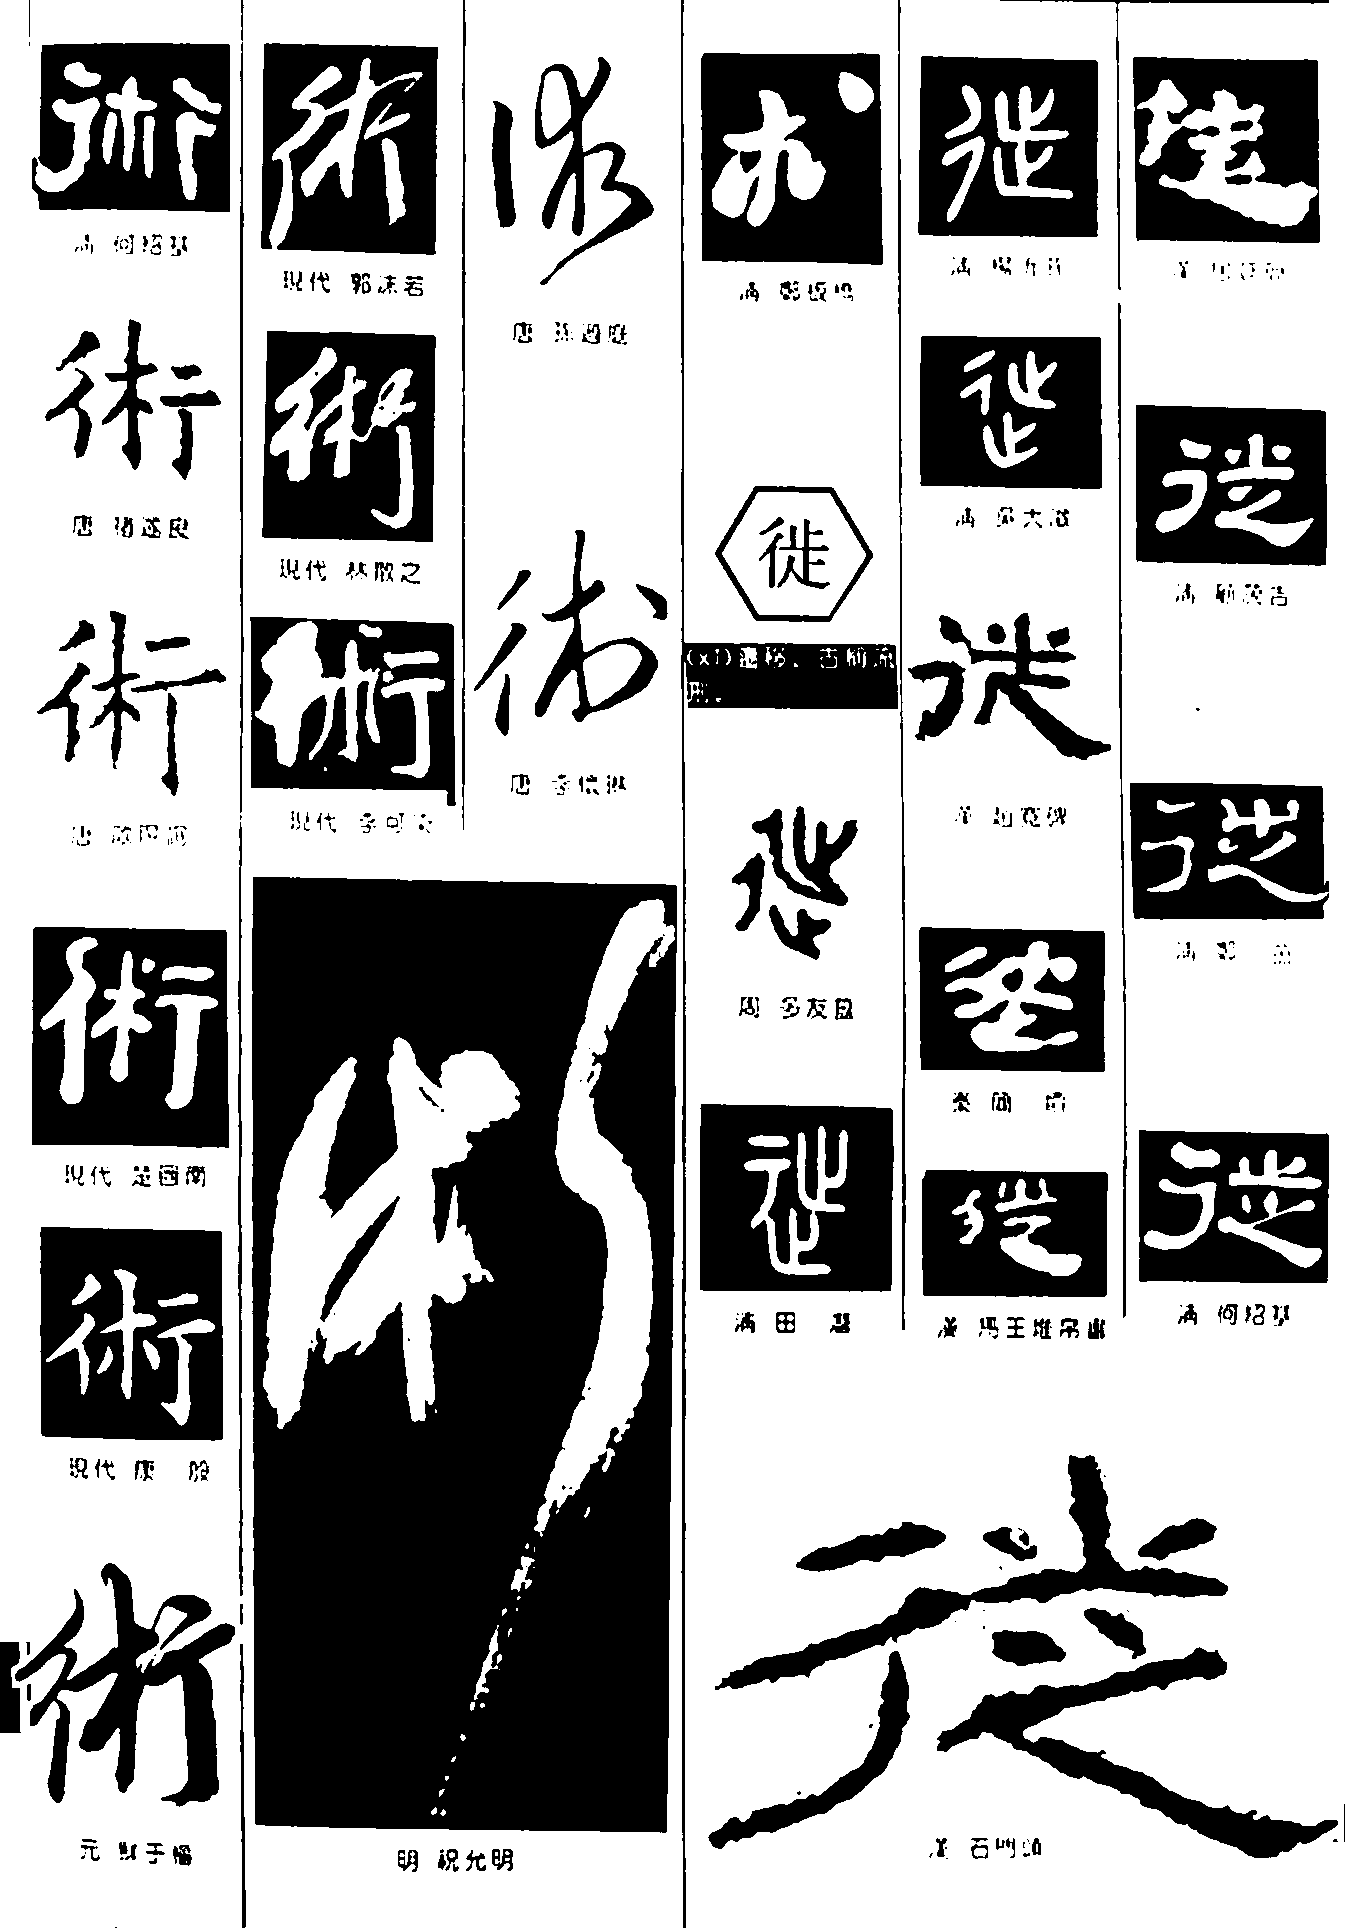 術
清 何紹基
術
唐 褚遂良
術
唐 歐陽詢
術
現代 楚圖南
術
現代 康 殷
術
元 鮮于樞
術
現代 郭沫若
術
現代 林散之
術
現代 李可染
術
明 祝允明
術
唐 孫過庭
術
唐 李懷琳
术
清 鄭板橋
徙
(xǐ)遷移。古稱流
刑。
徙
周 多友鼎
徙
清 田 潛
徙
清 楊沂孫
徙
清 吳大澂
徙
漢 趙寬碑
徙
秦 簡 牘
徙
漢 馬王堆帛書
徙
漢 居延簡
徙
清 顧藹吉
徙
清 鄭 簠
徙
清 何紹基
徙
漢 石門頌